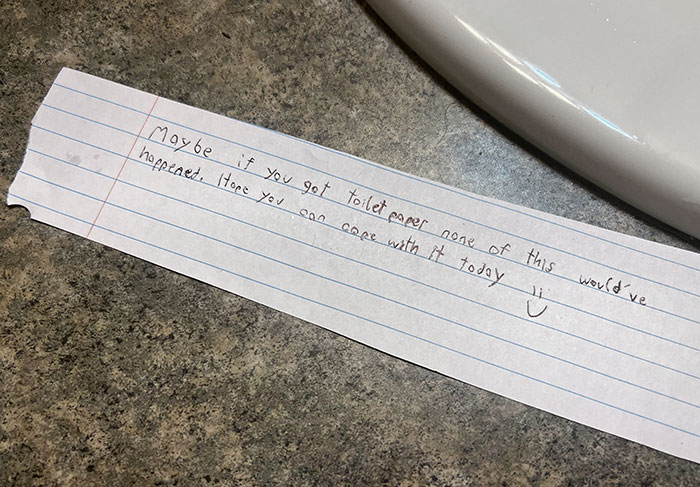 Maybe if you got toilet paper none of this would've
happened. Hope you can cope with it today :)